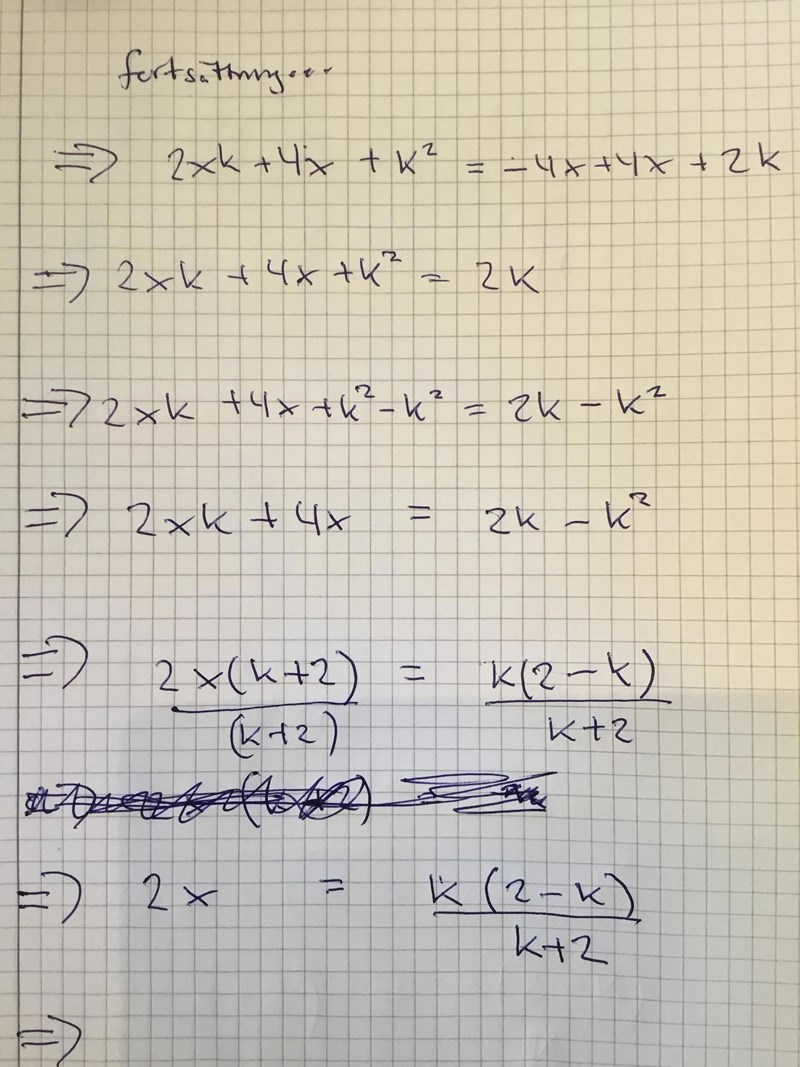 fortsättning...
=> 2xk + 4x + k² = -4x + 4x + 2k
=> 2xk + 4x + k² = 2k
=> 2xk + 4x + k² - k² = 2k - k²
=> 2xk + 4x = 2k - k²
=> 2x(k+2)/(k+2) = k(2-k)/k+2
=> 2x = k(2-k)/k+2
=>